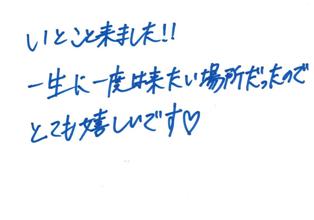 いとこと来ました!!
一生に一度は来たい場所だったので
とても嬉しいです♡